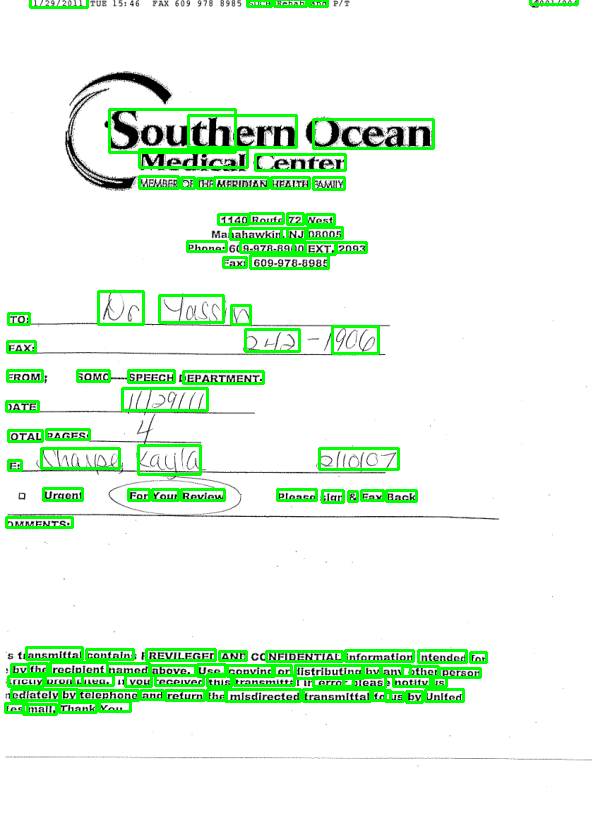 1/29/2011 TUE 15:46 FAX 609 978 8985 SOCH Rehab and P/T
Southern Ocean
Medical Center
MEMBER OF THE MERIDIAN HEALTH FAMILY
1140 Route 72 West
Manahawkin, NJ 08005
Phone: 609-978-8900 EXT. 2093
Fax: 609-978-8985
TO: Dr Yassin
FAX: 242-1906
FROM: SOMC SPEECH DEPARTMENT.
DATE 11/29/11
OTAL PAGES: 4
E: Sharpe, Kayla 2/10/07
Urgent For Your Review Please sign & Fax Back
OMMENTS:
s transmittal contains PREVILEGED AND CONFIDENTIAL information intended for
by the recipient named above. Use, copying or distributing by any other person
trictly prohibited. If you received this transmittal in error please notify us
mediately by telephone and return the misdirected transmittal to us by United
tes mail. Thank You.